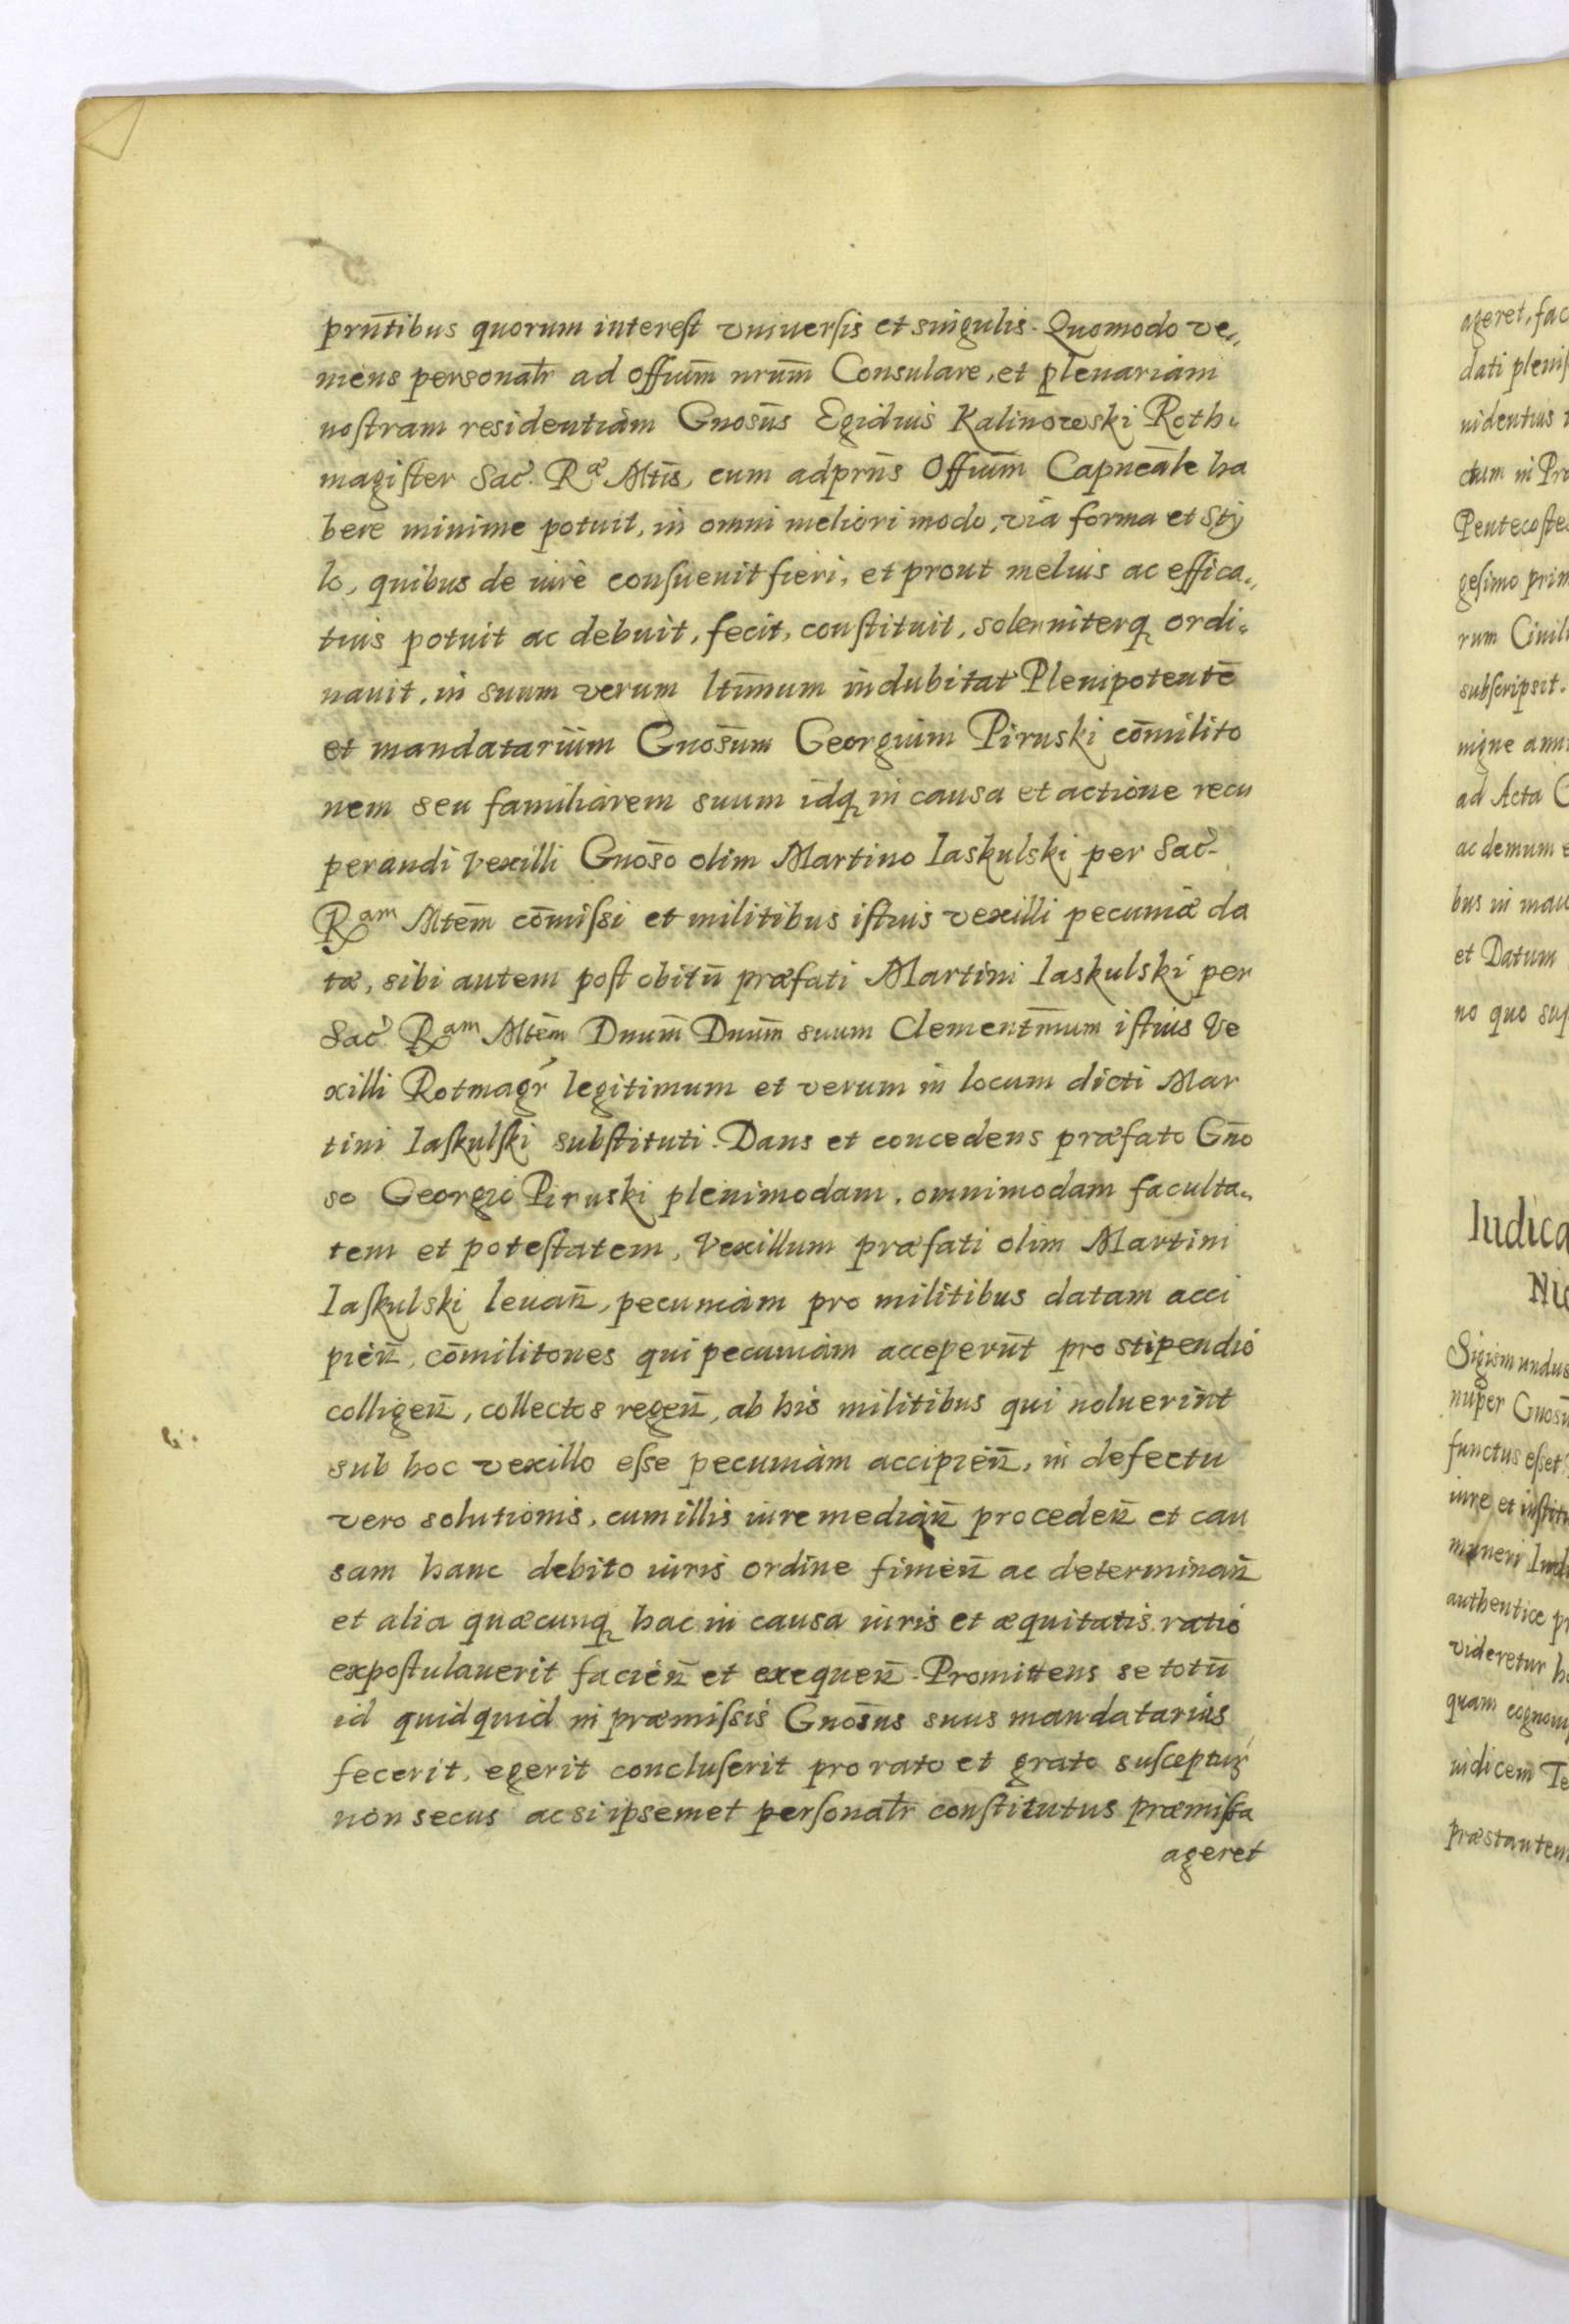 prñtibus quorum interest vniuersis et singulis. Quomodo ve„
niens personalr ad Offium̄ nrum̄ Consulare, et plenariam
nostram residentiam Gnosūs Egidius Kalinowski Roth„
magister Sac. Rᵃᵉ Mtis, cum adprñs Offium̄ Capneāle ha
bere minime potuit, in omni meliori modo, via forma et Sty
lo, quibus de iure consueuit fieri, et prout melius ac effica„
tius potuit ac debuit, fecit, constituit, solenniterq ordi„
nauit, in suum verum ltim̄um indubitat Plenipotentē
et mandatarium Gnosūm Georgium Piruski cōmilito
nem seu familiarem suum idq in causa et actione recu
perandi Vexilli Gnosō olim Martino Iaskulski per Sac.
Rᵃᵐ Mtēm cōmissi et militibus istius vexilli pecuniæ da
tæ, sibi autem post obitū præfati Martini Iaskulski per
Sac. Rᵃᵐ Mtēm Dnum̄ Dnum̄ suum Clementm̄um istius Ve
xilli Rotmagr̄ legitimum et verum in locum dicti Mar
tini Iaskulski substituti. Dans et concedens præfato Gñō
so Georgio Piruski plenimodam, omnimodam faculta„
tem et potestatem, Vexillum præfati olim Martini
Iaskulski leuan̄, pecuniam pro militibus datam acci
pien̄, cōmilitones qui pecuniam acceperūt pro stipendio
colligen̄, collectos regen̄, ab his militibus qui noluerint
sub hoc vexillo esse pecuniam accipien̄, in defectu
vero solutionis, cum illis iure median̄ proceden̄ et cau
sam hanc debito iuris ordine finien̄ ac determinan̄
et alia quæcunq hac in causa iuris et æquitatis ratio
expostulauerit facien̄ et exequen̄. Promittens se totū
id quidquid in præmissis Gnosūs suus mandatarius
fecerit, egerit concluserit pro rato et grato susceptur
non secus ac si ipsemet personalr constitutus præmissa
ageret
ageret, fac
dati plenis
uidentius
ctum in Pr
Pentecostes
gesimo prim
rum Ciuili
subscripsit.
nigne ann
ad Acta C
ac demum e
bus in man
et Datum
no quo sup
Iudica
Nic
Sigismundus
nuper Gnosū
functus esset
iure et institu
muneri Iudi
authentice pr
videretur h
quam cognoui
iudicem Te
præstantem